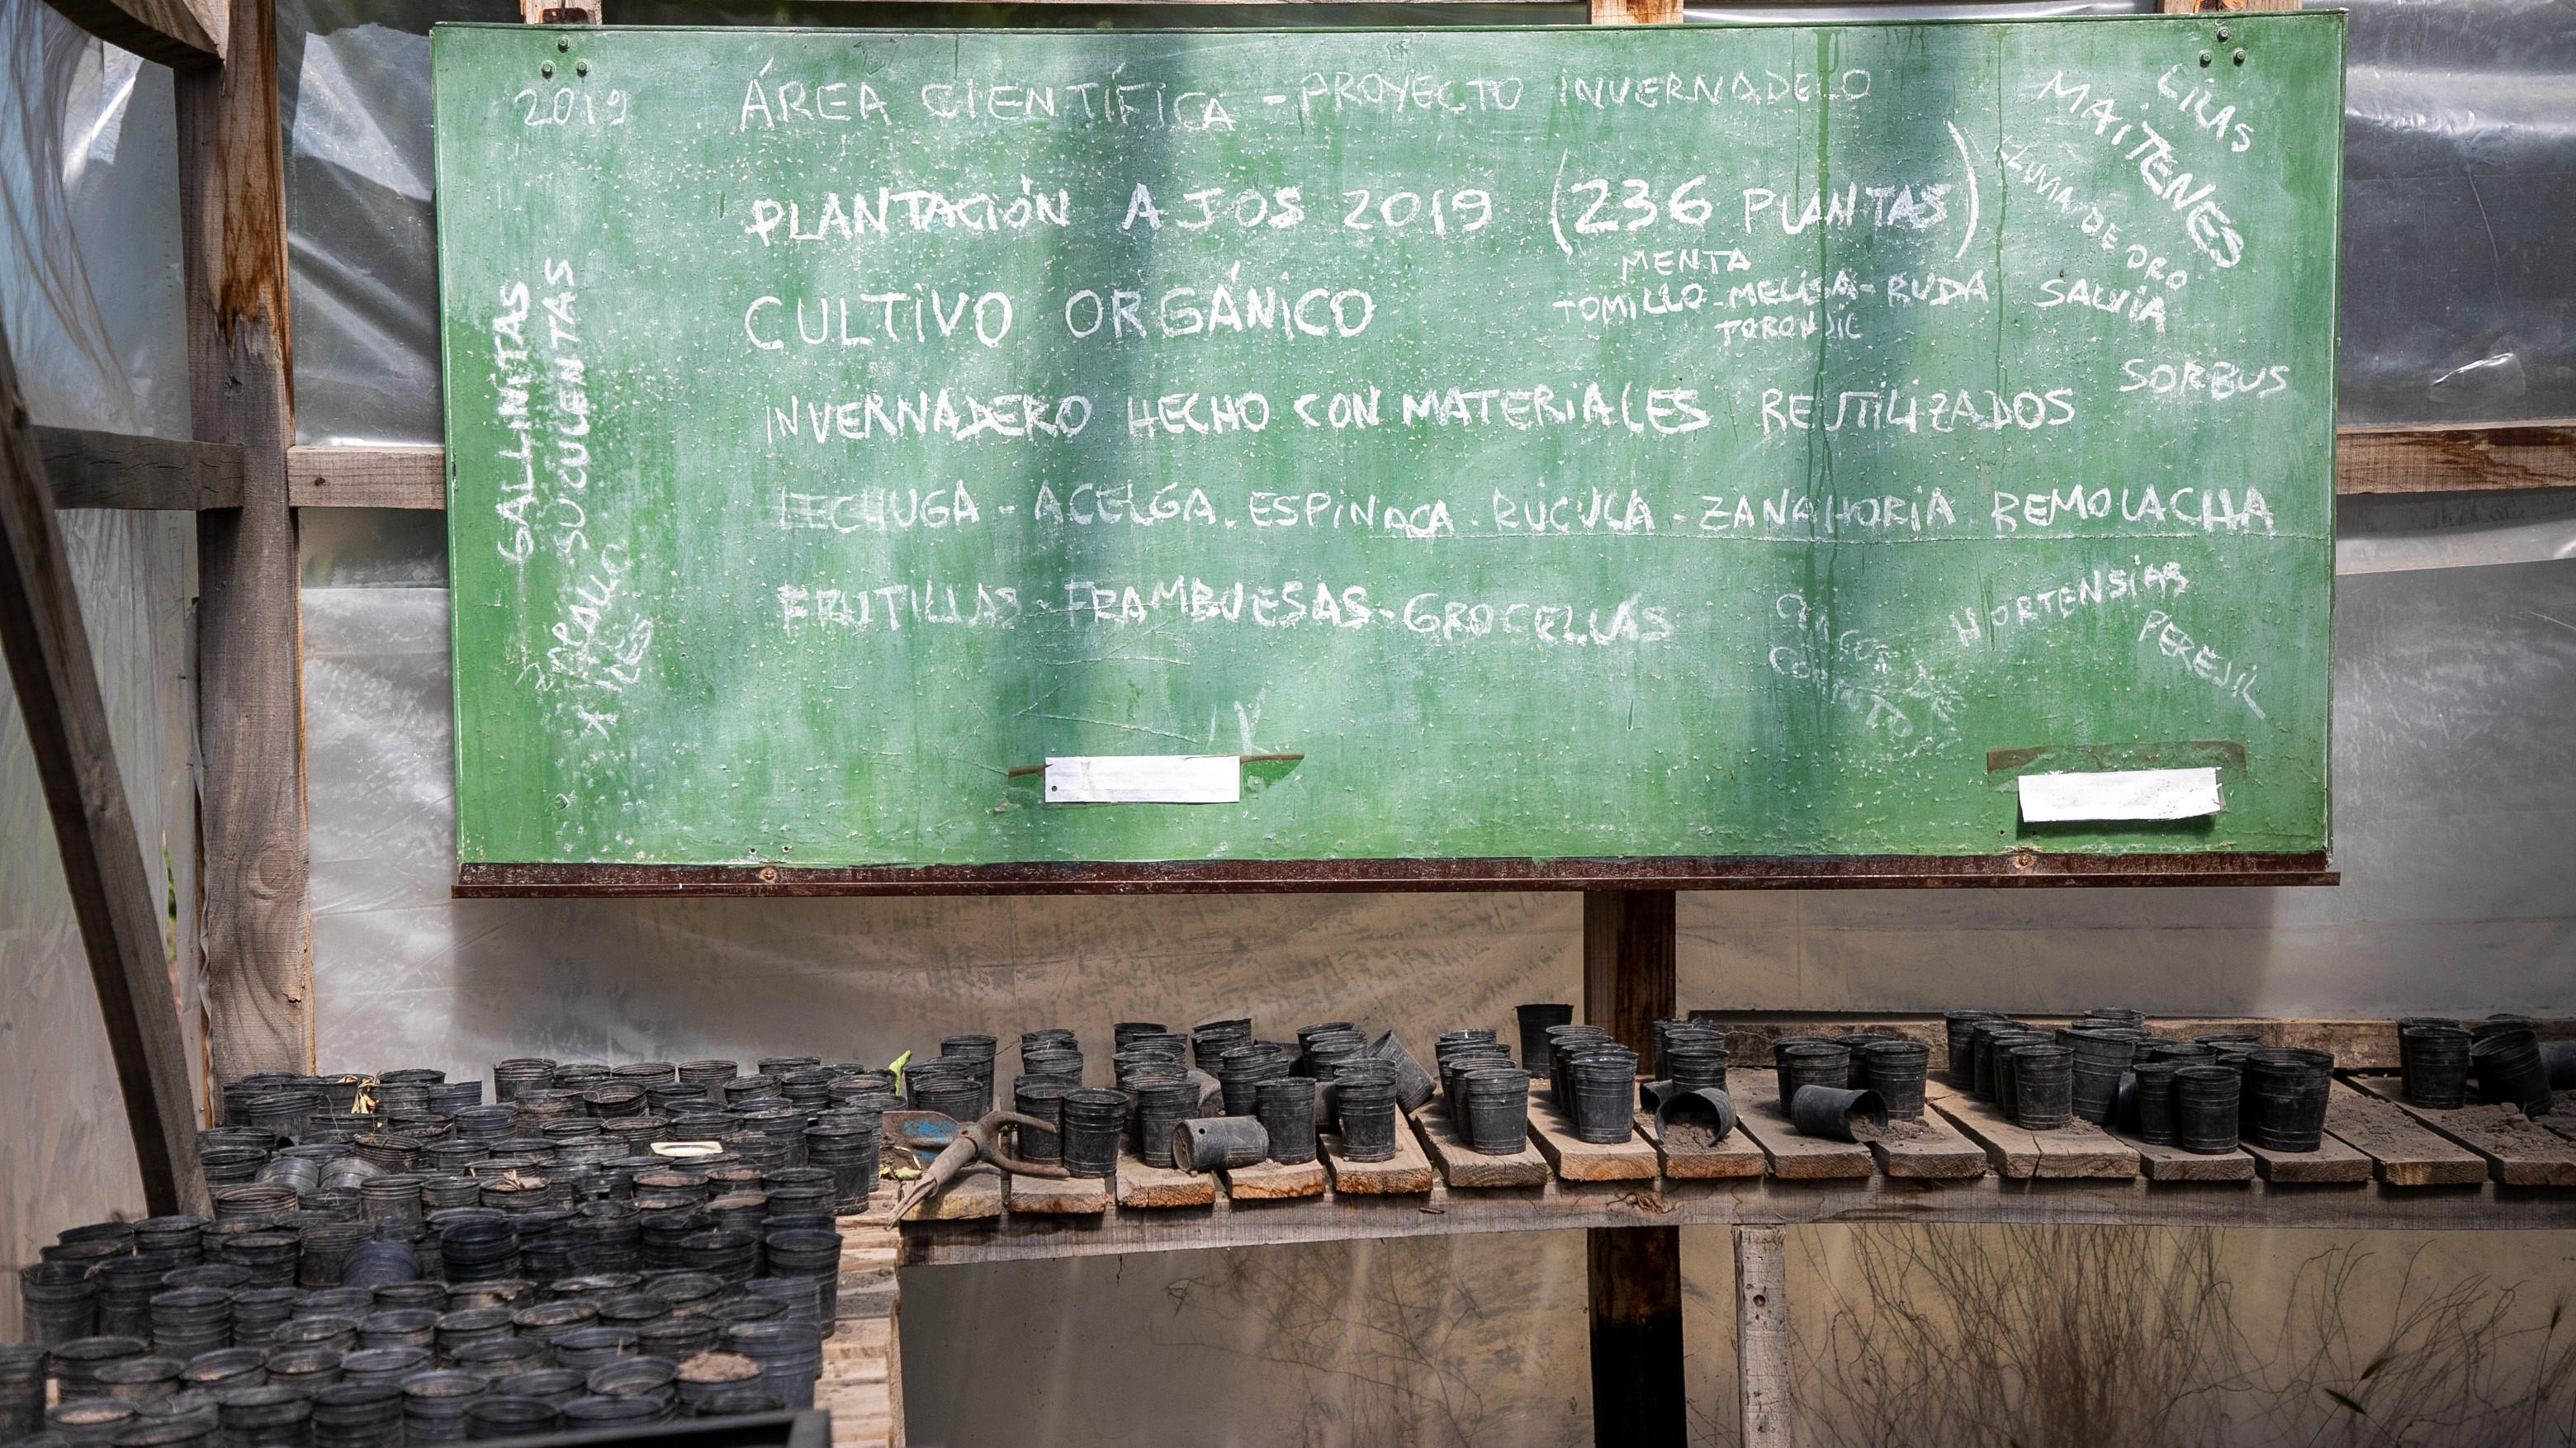 2019
ÁREA CIENTÍFICA - PROYECTO INVERNADERO
PLANTACIÓN AJOS 2019 (236 PLANTAS)
CULTIVO ORGÁNICO
MENTA
TOMILLO - MELISA - RUDA
TORONJIL
INVERNADERO HECHO CON MATERIALES REUTILIZADOS
LECHUGA - ACELGA - ESPINACA - RÚCULA - ZANAHORIA REMOLACHA
FRUTILLAS - FRAMBUESAS - GROCELLAS
LILAS
MAITENES
LLUVIA DE ORO
SALVIA
SORBUS
HORTENSIAS
PEREJIL
CORINTO
GALLINITAS
SUCULENTAS